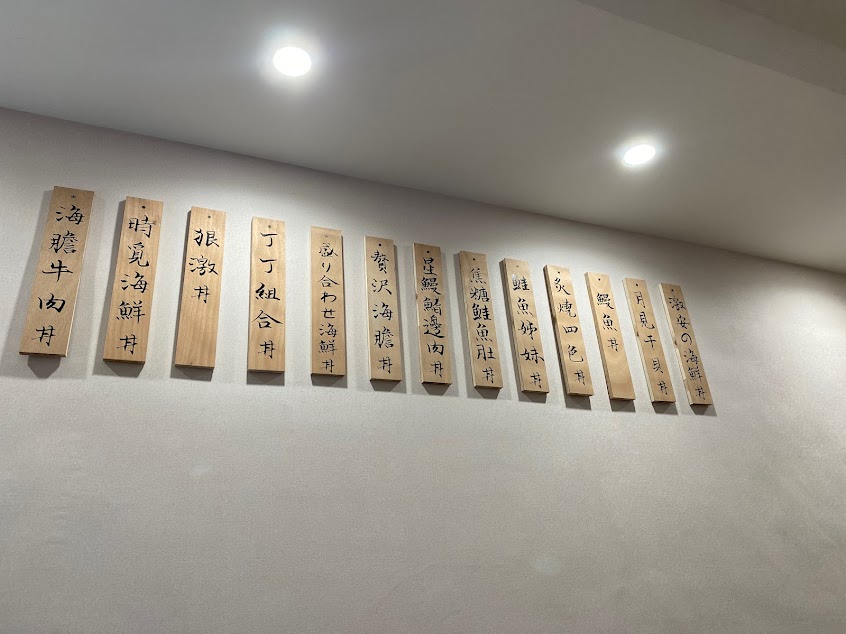 激安の海鮮丼
月見干貝丼
鰻魚丼
炙燒四色丼
鮭魚姊妹丼
焦糖鮭魚肚丼
星鰻鰭邊肉丼
贅沢海膽丼
盛り合わせ海鮮丼
丁丁組合丼
狠激丼
時覓海鮮丼
海膽牛肉丼